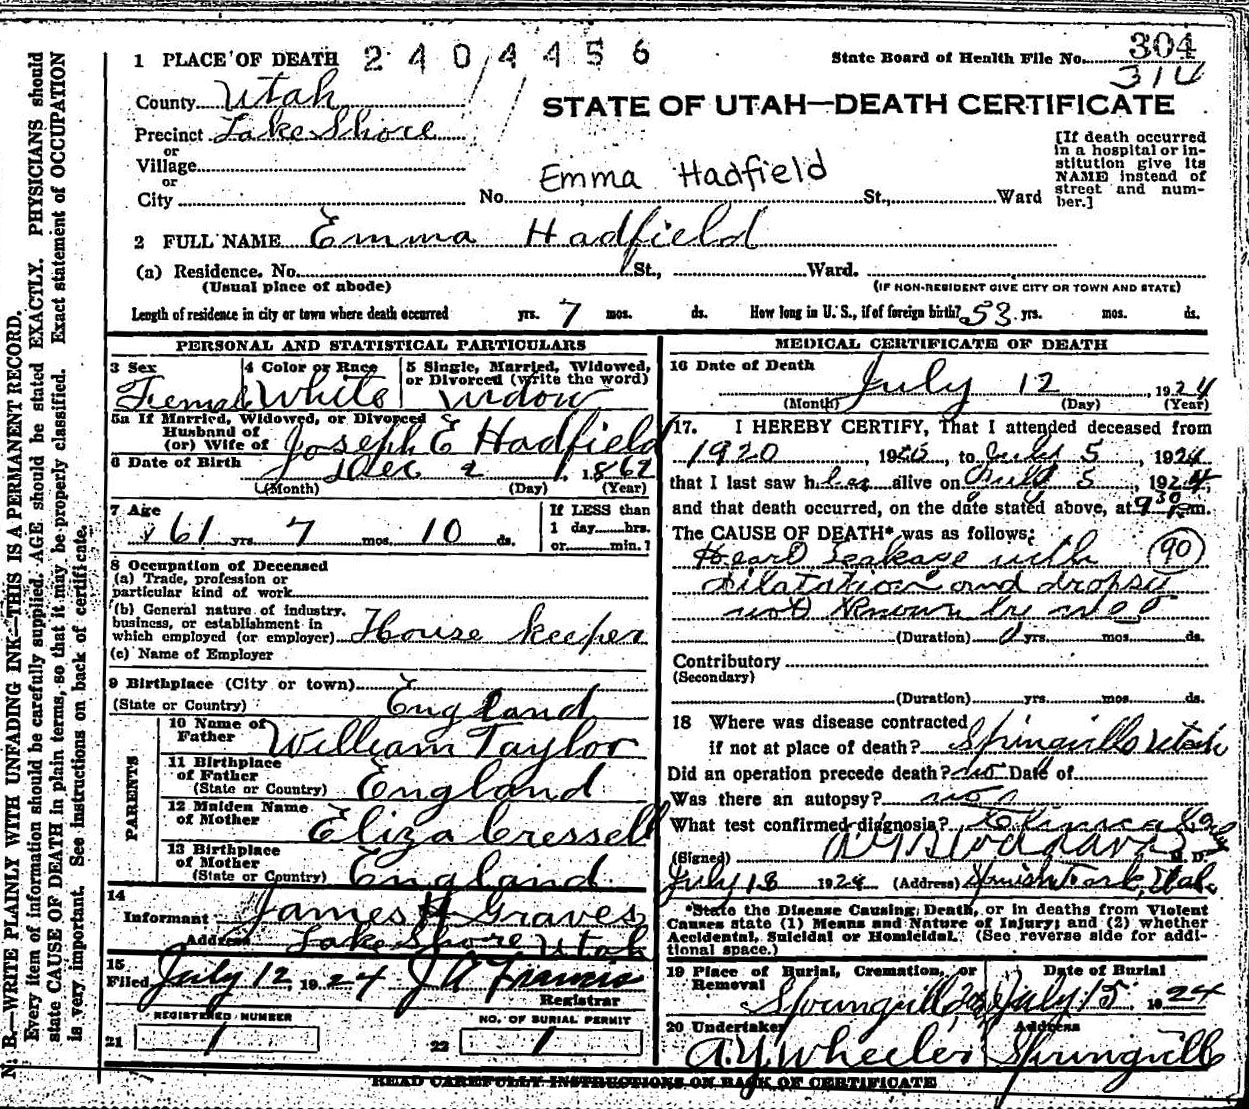 1 PLACE OF DEATH 2404456
State Board of Health File No. 304
314
County Utah
STATE OF UTAH—DEATH CERTIFICATE
Precinct Lake Shore
or
Village
or
City
No. Emma Hadfield St., Ward
[If death occurred in a hospital or institution give its NAME instead of street and number.]
2 FULL NAME Emma Hadfield
(a) Residence. No. St., Ward.
(Usual place of abode) (IF NON-RESIDENT GIVE CITY OR TOWN AND STATE)
Length of residence in city or town where death occurred yrs. 7 mos. ds. How long in U. S., if of foreign birth? 53 yrs. mos. ds.
PERSONAL AND STATISTICAL PARTICULARS
3 Sex Female
4 Color or Race White
5 Single, Married, Widowed, or Divorced (write the word) Widow
5a If Married, Widowed, or Divorced
Husband of
(or) Wife of Joseph E Hadfield
6 Date of Birth Dec 2 1862
(Month) (Day) (Year)
7 Age 61 yrs. 7 mos. 10 ds.
If LESS than
1 day hrs.
or min.?
8 Occupation of Deceased
(a) Trade, profession or
particular kind of work
(b) General nature of industry,
business, or establishment in
which employed (or employer) House keeper
(c) Name of Employer
9 Birthplace (City or town)
(State or Country) England
PARENTS
10 Name of Father William Taylor
11 Birthplace of Father
(State or Country) England
12 Maiden Name of Mother Eliza Cressell
13 Birthplace of Mother
(State or Country) England
14
Informant James H Graves
Address Lake Shore Utah
15
Filed July 12, 1924 J A Francis
Registrar
REGISTERED NUMBER
21 1
NO. OF BURIAL PERMIT
22 1
MEDICAL CERTIFICATE OF DEATH
16 Date of Death July 12, 1924
(Month) (Day) (Year)
17. I HEREBY CERTIFY, That I attended deceased from
1920, 19, to July 5, 1924
that I last saw her alive on July 5, 1924,
and that death occurred, on the date stated above, at 9 30 m.
The CAUSE OF DEATH* was as follows:
Heart Leakage with 90
Dilatation and dropsy
not known by me
(Duration) yrs. mos. ds.
Contributory
(Secondary)
(Duration) yrs. mos. ds.
18 Where was disease contracted
if not at place of death? Springville Utah
Did an operation precede death? no Date of
Was there an autopsy? no
What test confirmed diagnosis? Clinical
(Signed) M. D.
July 18 1924 (Address) Spanish Fork, Utah
*State the Disease Causing Death, or in deaths from Violent
Causes state (1) Means and Nature of Injury; and (2) whether
Accidental, Suicidal or Homicidal. (See reverse side for addi-
tional space.)
19 Place of Burial, Cremation, or Removal Springville
Date of Burial July 15 1924
20 Undertaker A. Y. Wheeler
Address Springville
READ CAREFULLY INSTRUCTIONS ON BACK OF CERTIFICATE
N. B.—WRITE PLAINLY WITH UNFADING INK—THIS IS A PERMANENT RECORD.
Every item of information should be carefully supplied. AGE should be stated EXACTLY. PHYSICIANS should
state CAUSE OF DEATH in plain terms, so that it may be properly classified. Exact statement of OCCUPATION
is very important. See instructions on back of certificate.